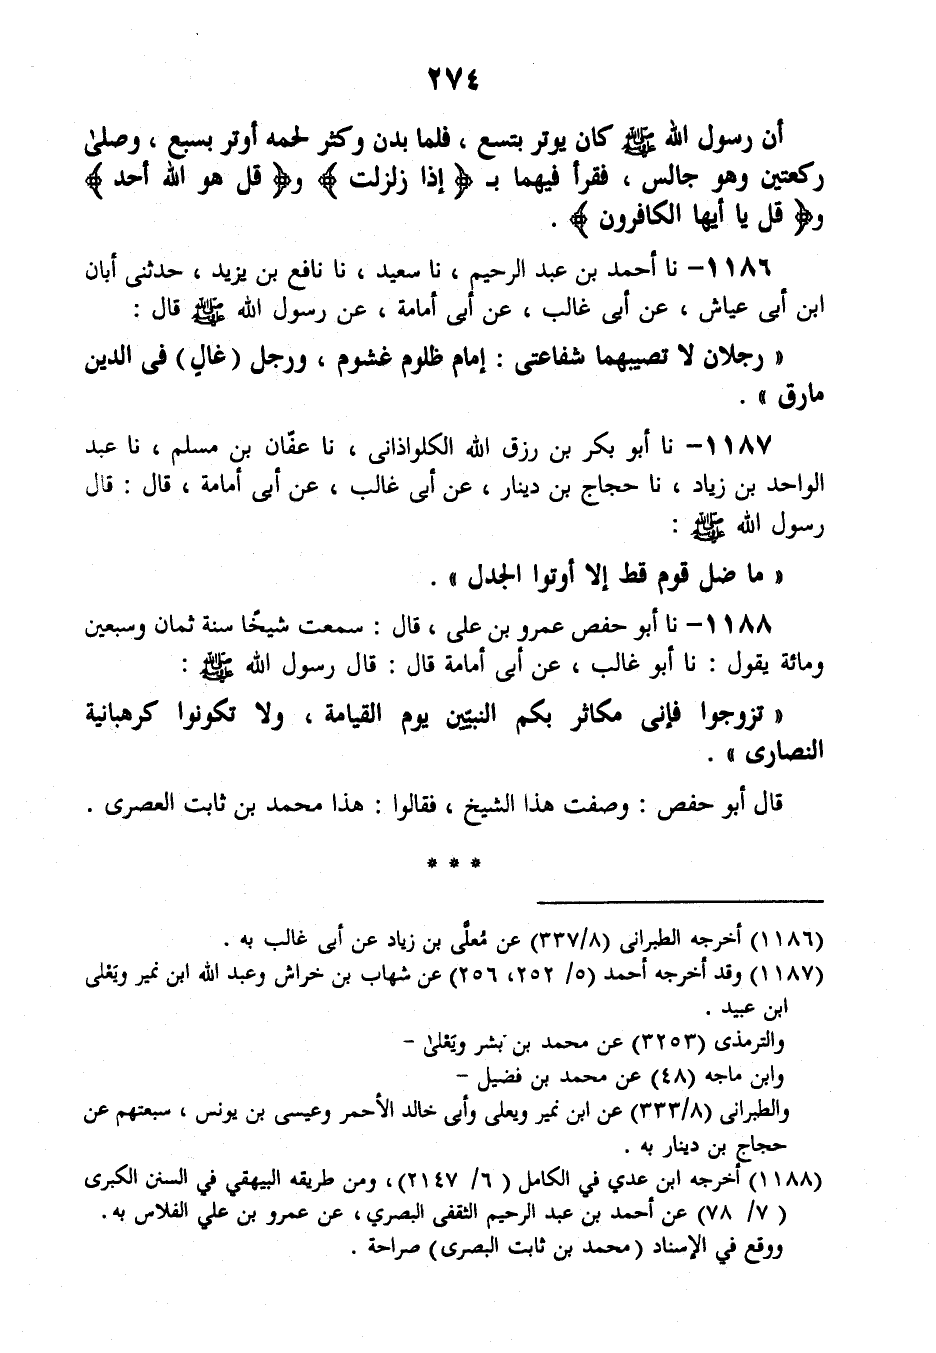 ٢٧٤
أن رسول الله ﷺ كان يوتر بتسع ، فلما بدن وكثر لحمه أوتر بسبع ، وصلىٰ
ركعتين وهو جالس ، فقرأ فيهما بـ ﴿ إذا زلزلت ﴾ و﴿ قل هو الله أحد ﴾
و﴿ قل يا أيها الكافرون ﴾ .
١١٨٦– نا أحمد بن عبد الرحيم ، نا سعيد ، نا نافع بن يزيد ، حدثنى أبان
ابن أبى عياش ، عن أبى غالب ، عن أبى أمامة ، عن رسول الله ﷺ قال :
« رجلان لا تصيبهما شفاعتى : إمام ظلوم غشوم ، ورجل (غالٍ) فى الدين
مارق » .
١١٨٧– نا أبو بكر بن رزق الله الكلواذانى ، نا عفّان بن مسلم ، نا عبد
الواحد بن زياد ، نا حجاج بن دينار ، عن أبى غالب ، عن أبى أمامة ، قال : قال
رسول الله ﷺ :
« ما ضل قوم قط إلا أوتوا الجدل » .
١١٨٨– نا أبو حفص عمرو بن على ، قال : سمعت شيخًا سنة ثمان وسبعين
ومائة يقول : نا أبو غالب ، عن أبى أمامة قال : قال رسول الله ﷺ :
« تزوجوا فإنى مكاثر بكم النبيّين يوم القيامة ، ولا تكونوا كرهبانية
النصارى » .
قال أبو حفص : وصفت هذا الشيخ ، فقالوا : هذا محمد بن ثابت العصرى .
* * *
(١١٨٦) أخرجه الطبرانى (٣٣٧/٨) عن مُعلَّى بن زياد عن أبى غالب به .
(١١٨٧) وقد أخرجه أحمد (٥/ ٢٥٢، ٢٥٦) عن شهاب بن خراش وعبد الله ابن نمير ويَعْلى
ابن عبيد .
والترمذى (٣٢٥٣) عن محمد بن بشر ويَعْلىٰ –
وابن ماجه (٤٨) عن محمد بن فضيل –
والطبرانى (٣٣٣/٨) عن ابن نمير ويعلى وأبى خالد الأحمر وعيسى بن يونس ، سبعتهم عن
حجاج بن دينار به .
(١١٨٨) أخرجه ابن عدي في الكامل ( ٦/ ٢١٤٧)، ومن طريقه البيهقي في السنن الكبرى
( ٧/ ٧٨) عن أحمد بن عبد الرحيم الثقفى البصري، عن عمرو بن علي الفلاس به.
ووقع في الإسناد (محمد بن ثابت البصرى) صراحة .